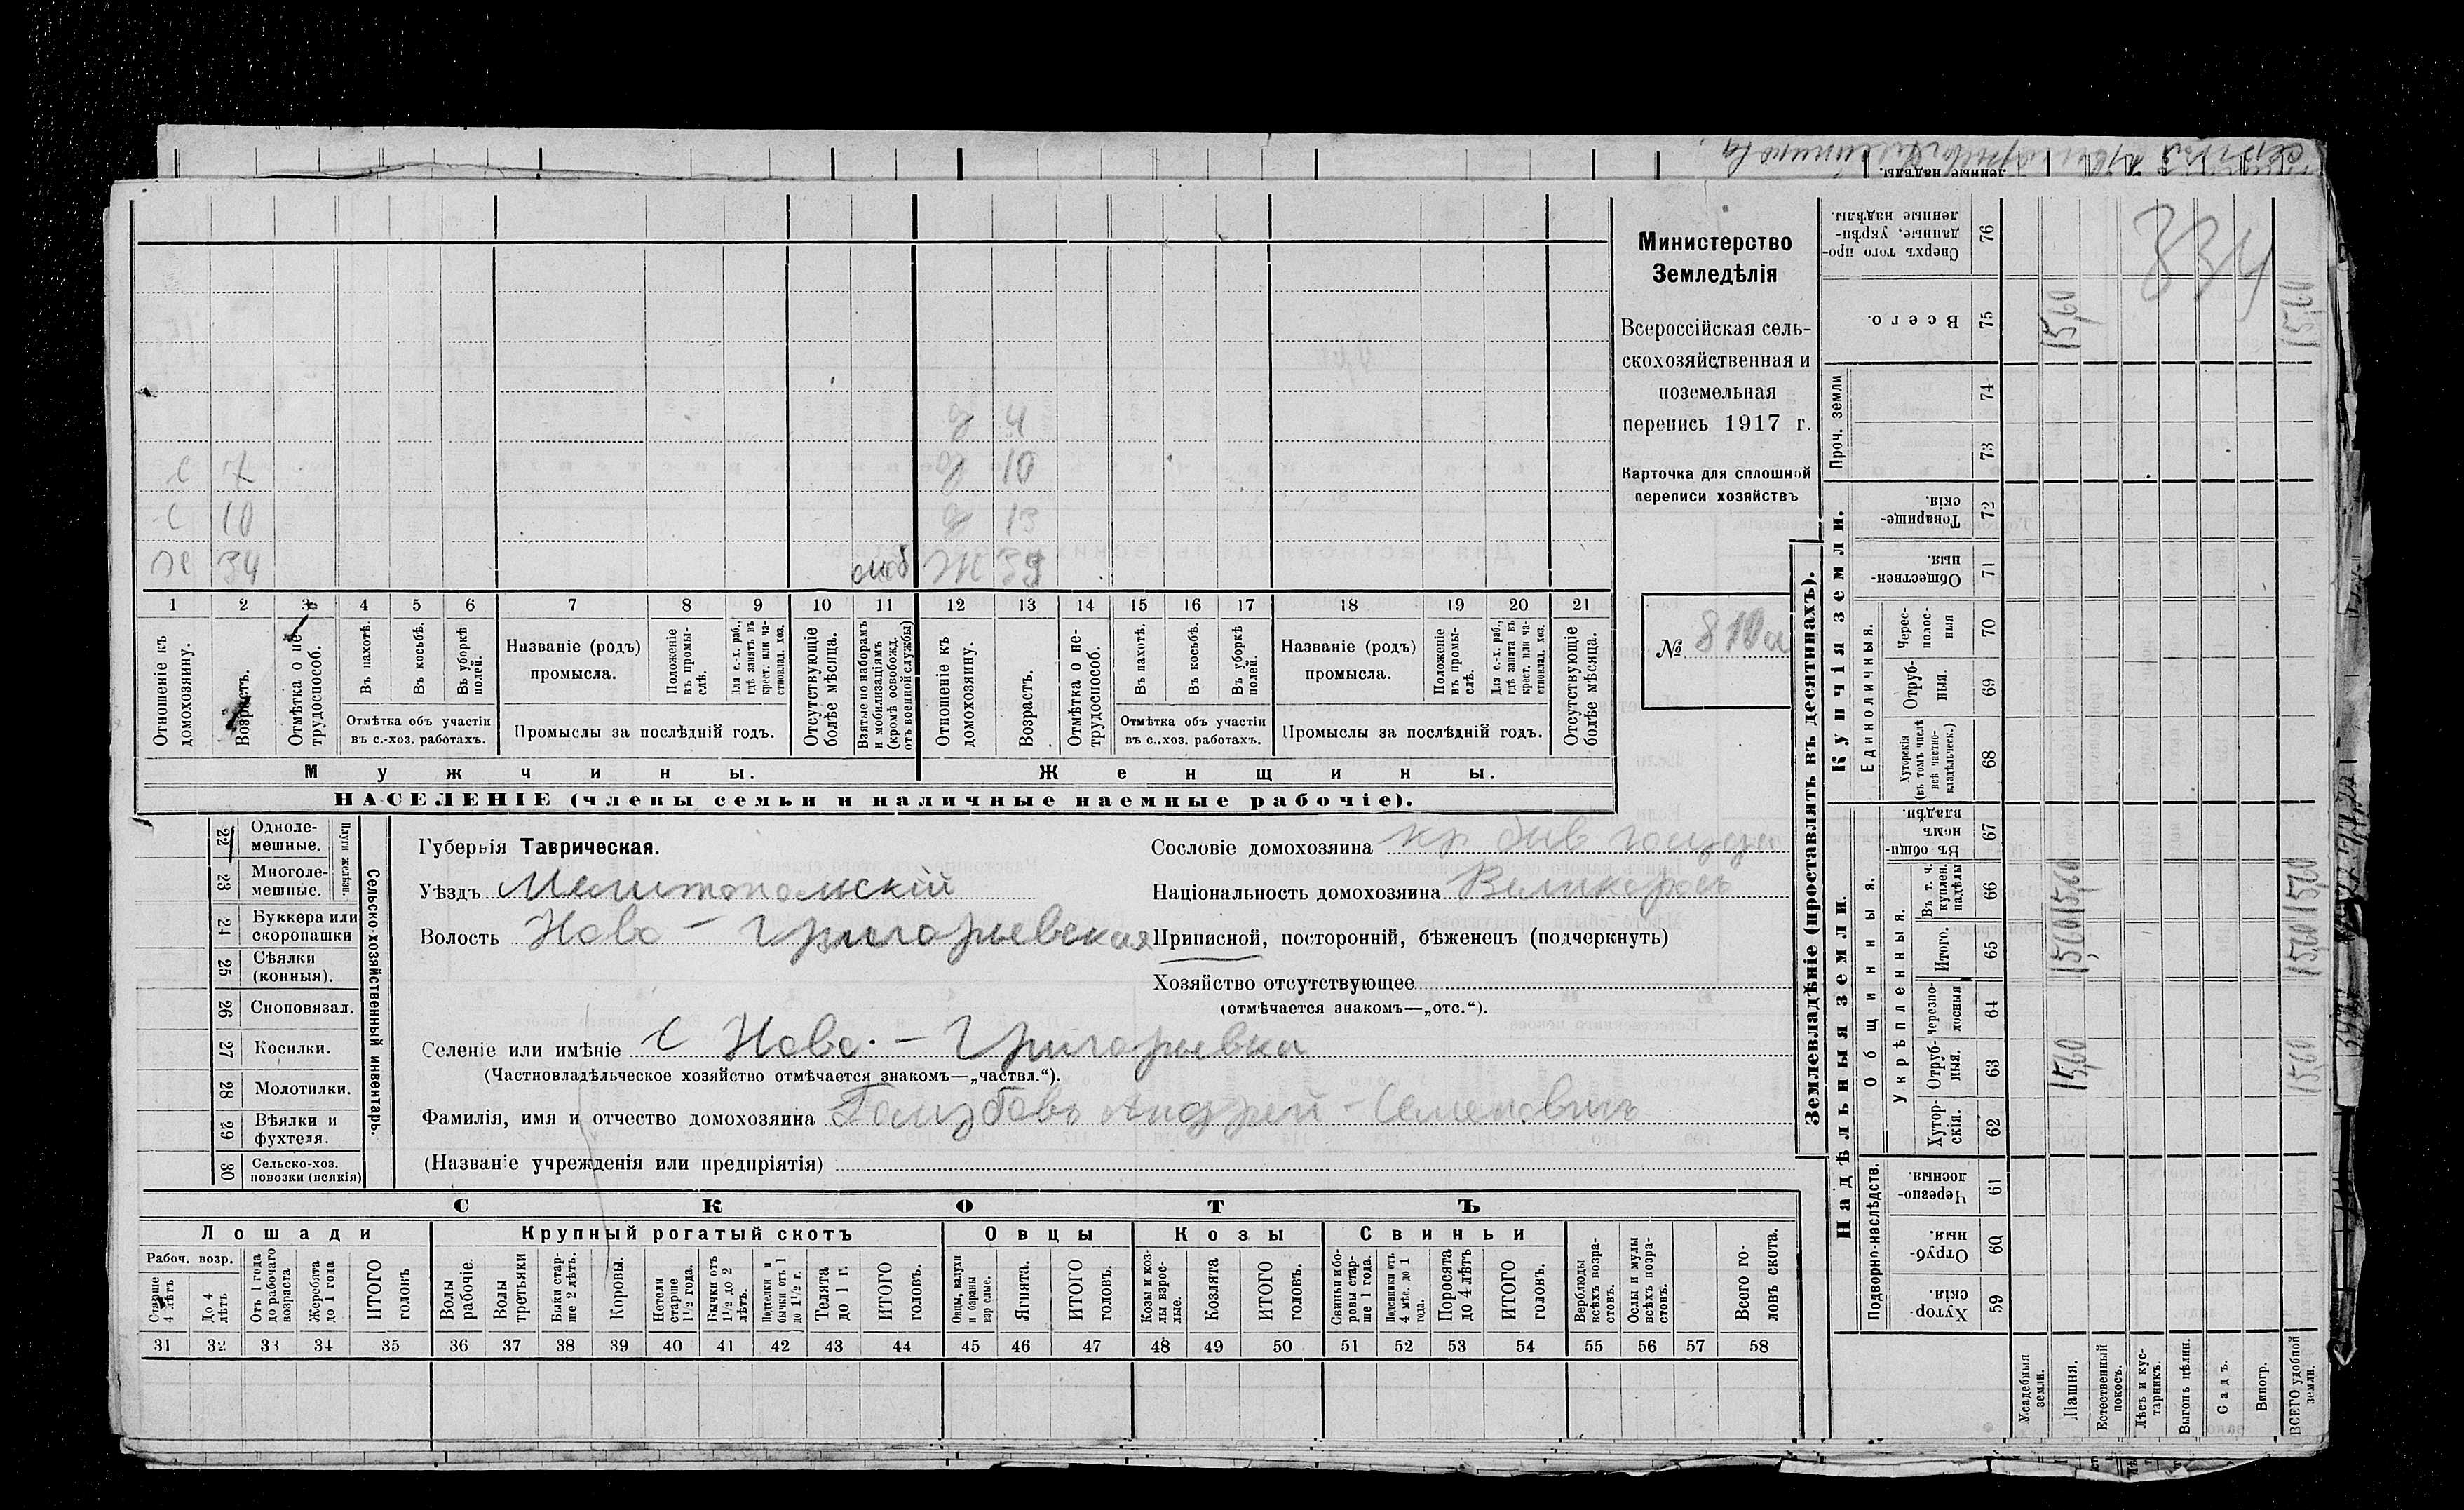 334
Министерство
Земледѣлія
Всероссійская сель-
скохозяйственная и
поземельная
перепись 1917 г.
Карточка для сплошной
переписи хозяйствъ
№ 810а
д 4
с 7 д 10
с 10 д 13
Х 34 моб Ж 39
1 2 3 4 5 6 7 8 9 10 11 12 13 14 15 16 17 18 19 20 21
Отношеніе къ домохозяину.
Возрастъ.
Отмѣтка о не-трудоспособ.
Въ пахотѣ.
Въ косьбѣ.
Въ уборкѣ полей.
Отмѣтка объ участіи
въ с.-хоз. работахъ.
Названіе (родъ)
промысла.
Положеніе въ промы-слѣ.
Для с.-х. раб., гдѣ занятъ въ крест. или ча-стновлад. хоз.
Промыслы за послѣдній годъ.
Отсутствующіе болѣе мѣсяца.
Взятые по наборамъ и мобилизаціямъ (кромѣ освобожд. отъ военной службы)
Отношеніе къ домохозяину.
Возрастъ.
Отмѣтка о не-трудоспособ.
Въ пахотѣ.
Въ косьбѣ.
Въ уборкѣ полей.
Отмѣтка объ участіи
въ с..хоз. работахъ.
Названіе (родъ)
промысла.
Положеніе въ промы-слѣ.
Для с.-х. раб., гдѣ занята въ крест. или ча-стновлад. хоз.
Промыслы за послѣдній годъ.
Отсутствующіе болѣе мѣсяца.
Мужчины. Женщины.
НАСЕЛЕНІЕ (члены семьи и наличные наемные рабочіе).
Сельско-хозяйственный инвентарь.
Плуги желѣзн.
22 Одноле-мешные.
23 Многоле-мешные.
24 Буккера или скоропашки
25 Сѣялки (конныя).
26 Сноповязал.
27 Косилки.
28 Молотилки.
29 Вѣялки и фухтеля.
30 Сельско-хоз. повозки (всякія)
Губернія Таврическая.
Уѣздъ Мелитопольскій
Волость Ново-Григорьевская
Сословіе домохозяина кр бив
Національность домохозяина Великоросъ
Приписной, посторонній, бѣженецъ (подчеркнуть)
Хозяйство отсутствующее
(отмѣчается знакомъ—„отс.“).
Селеніе или имѣніе с Ново-Григорьевка
(Частновладѣльческое хозяйство отмѣчается знакомъ—„частвл.“).
Фамилія, имя и отчество домохозяина Андрей Семеновичъ
(Названіе учрежденія или предпріятія)
СКОТЪ
Лошади Крупный рогатый скотъ Овцы Козы Свиньи
Рабоч. возр.
Старше 4 лѣтъ
До 4 лѣтъ
Отъ 1 года до рабочаго возраста
Жеребята до 1 года
ИТОГО головъ
Волы рабочіе.
Волы третьяки
Быки стар-ше 2 лѣтъ.
Коровы.
Нетели старше 1½ года.
Бычки отъ 1½ до 2 лѣтъ.
Подтелки и бычки отъ 1 до 1½ г.
Телята до 1 г.
ИТОГО головъ.
Овцы, валухи и бараны взрослые.
Ягнята.
ИТОГО головъ.
Козы и коз-лы взрос-лые.
Козлята
ИТОГО головъ.
Свиньи и бо-ровы стар-ше 1 года.
Подсвинки отъ 4 мѣс. до 1 года.
Поросята до 4 лѣтъ
ИТОГО головъ.
Верблюды всѣхъ возра-стовъ.
Ослы и мулы всѣхъ возра-стовъ.
Всего го-ловъ скота.
31 32 33 34 35 36 37 38 39 40 41 42 43 44 45 46 47 48 49 50 51 52 53 54 55 56 57 58
Землевладѣніе (проставлять въ десятинахъ).
Купчія земли.
Надѣльныя земли.
Сверхъ того про-данные, укрѣп-ленные надѣлы. 76
Всего. 75 15,60 15,60
Проч. земли 74 73
Товарище-скія. 72
Обществен-ныя. 71
Единоличныя.
Черес-полос-ныя 70
Отруб-ныя. 69
Хуторскія (въ томъ числѣ всѣ частно-владѣльческ.) 68
Общинныя.
Въ общин-номъ владѣн. 67
Укрѣпленныя.
Въ т. ч. куплен. надѣлы 66 15,60 15,60
Итого. 65 15,60 15,60
Черезпо-лосныя 64
Отруб-ныя. 63 15,60 15,60
Хутор-скія. 62
Подворно-наслѣдств.
Черезпо-лосныя. 61
Отруб-ныя. 60
Хутор-скія. 59
Усадебныя земли.
Пашня.
Естественный покосъ.
Лѣсъ и кус-тарникъ.
Выгонъ цѣлин.
Садъ.
Виногр.
ВСЕГО удобной земли.